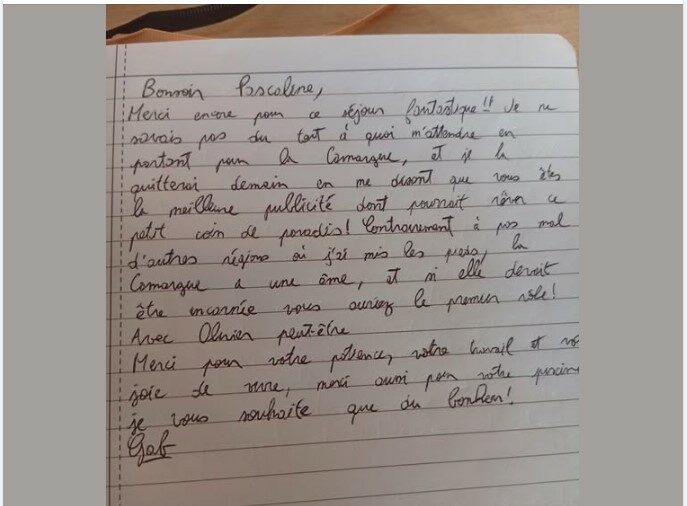 Bonsoir Pascalene,
Merci encore pour ce séjour fantastique !! Je ne
savais pas du tout à quoi m'attendre en
partant pour la Camargue, et je la
quitterai demain en me disant que vous êtes
la meilleure publicité dont pourrait rêver ce
petit coin de paradis! Contrairement à pas mal
d'autres régions où j'ai mis les pieds, la
Camargue a une âme, et si elle devait
être incarnée vous auriez le premier rôle!
Avec Olivier peut-être
Merci pour votre patience, votre travail et
joie de vivre, merci aussi pour votre
je vous souhaite que du bonheur!
Gab